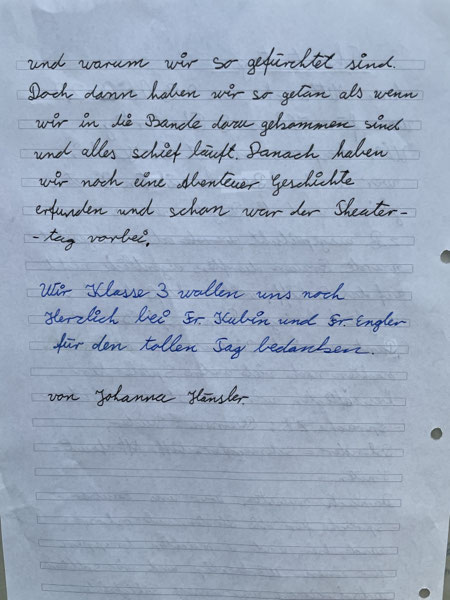 und warum wir so gefürchtet sind.
Doch dann haben wir so getan als wenn
wir in die Bande dazu gekommen sind
und alles schief läuft. Danach haben
wir noch eine Abenteuer Geschichte
erfunden und schon war der Theater-
-tag vorbei.
Wir Klasse 3 wollen uns noch
Herzlich bei Fr. Kubin und Fr. Engler
für den tollen Tag bedanken.
von Johanna Hänsler.